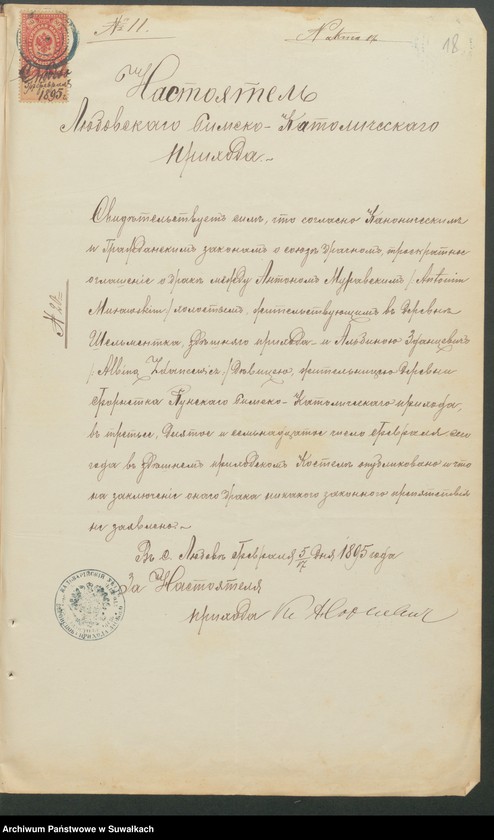 № 11.
18.
1895 г.
Настоятель
Любовскаго Римско-Католическаго
прихода.
Свидѣтельствуетъ симъ, что согласно Каноническимъ
и Гражданскимъ законамъ о союзѣ брачномъ, троекратное
оглашеніе о бракѣ между Антономъ Муравскимъ /Antonim
Murawskim/ холостымъ, жительствующимъ въ деревнѣ
Шельментка, здѣшняго прихода и Альбиною Зданцевичъ
/Albiną Zdancewicz/ дѣвицею, жительницею деревни
Пунскаго Римско-Католическаго прихода,
въ третье, десятое и семнадцатое число Февраля сего
года въ здѣшнемъ приходскомъ Костелѣ опубликовано и что
на заключеніе онаго брака никакого законнаго препятствія
не заявлено.
Въ с. Любовъ Февраля 5/17 дня 1895 года
За Настоятеля
прихода
Archiwum Państwowe w Suwałkach